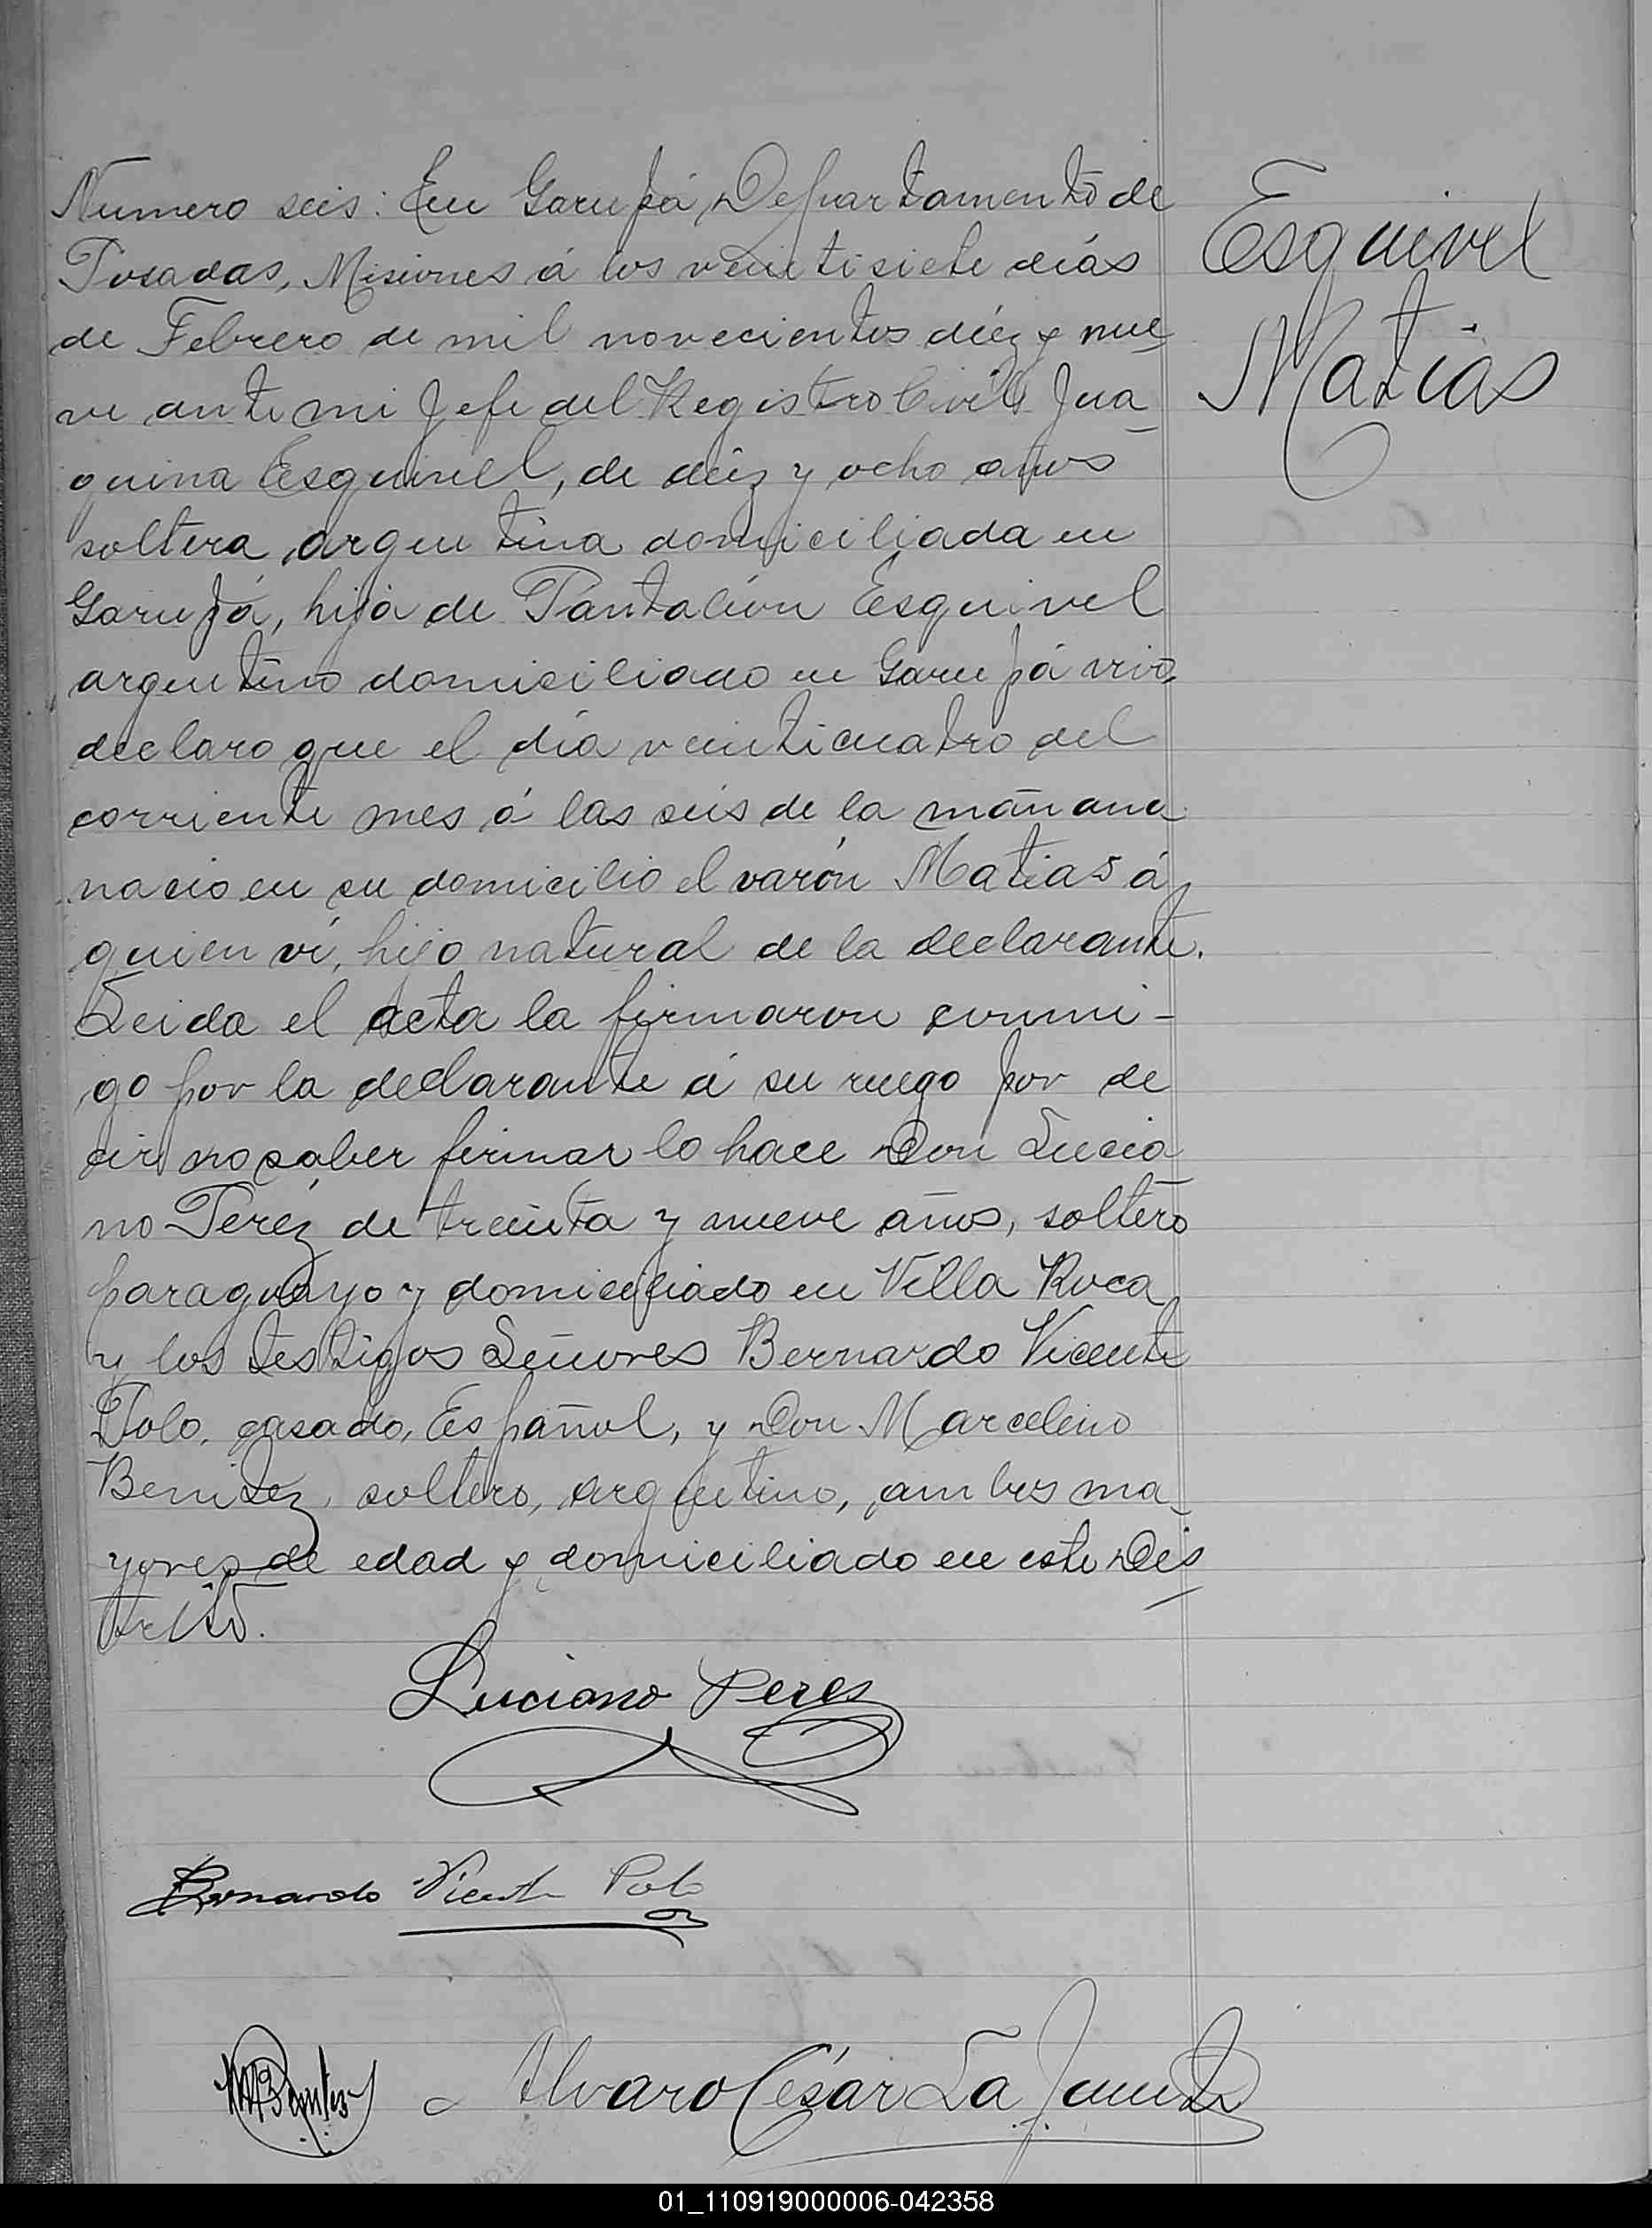 Numero seis: En Garupá, Departamento de
Posadas, Misiones á los veintisiete días
de Febrero de mil novecientos diéz y nue
ve ante mi Jefe del Registro Civil, Jua
quina Esquivel, de diéz y ocho años
soltera, argentina domiciliada en
Garupá, hija de Pantaleón Esquivel
argentino domiciliado en Garupá
declaro que el día veinticuatro del
corriente mes á las seis de la mañana
nacio en su domicilio el varón Matias á
quien ví, hijo natural de la declarante.
Leida el acta la firmaron conmi-
go por la declarante á su ruego por de
cir no saber firmar lo hace Don Lucia
no Peréz de treinta y nueve años, soltero
paraguayo y domiciliado en Villa Roca
y los testigos Señores Bernardo Vicente
Polo, casado, Español, y Don Marcelino
Benitez, soltero, argentino, ambos ma-
yores de edad y domiciliado en este Dis
trito.
Esquivel
Matias
Luciano Peres
Bernardo Vicente Polo
MBenitez
Alvaro César La
01_110919000006-042358